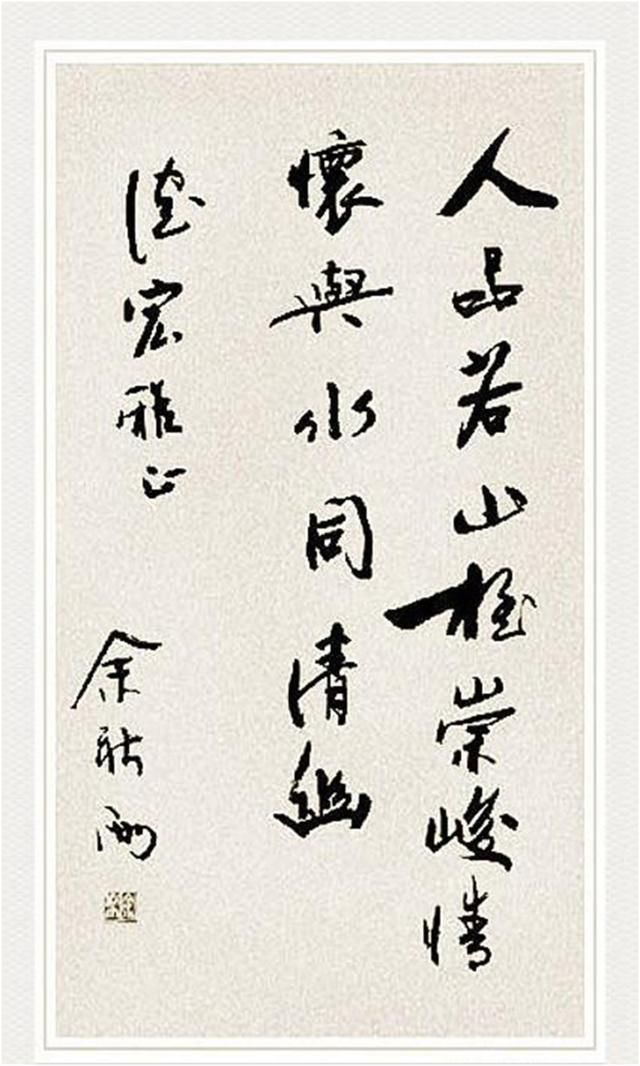 人品若山極崇峻情
懷與水同清幽
德宏雅正 余秋雨